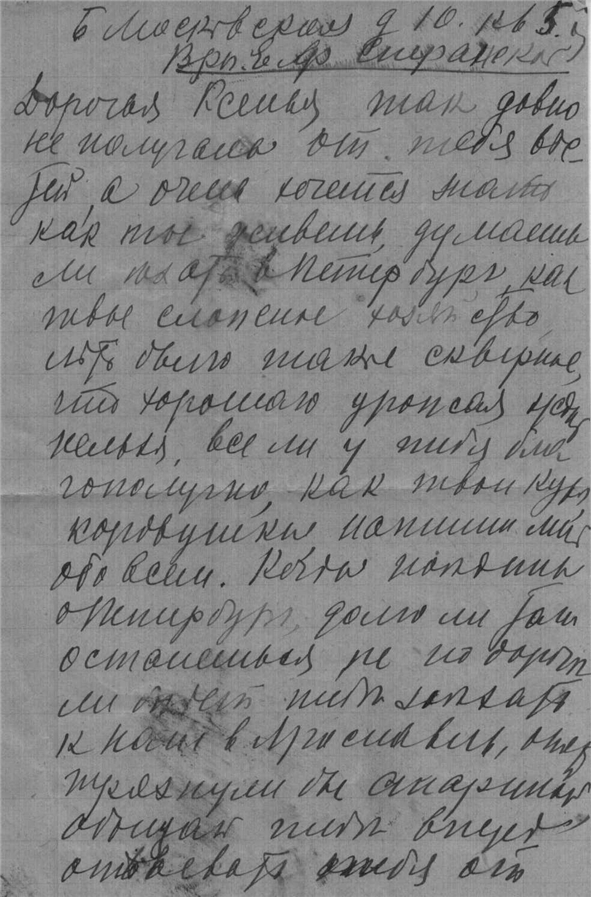 Б Московская д 10. кв 5.
Вры. Ел. Ф Сперанской
Дорогая Ксенья, так давно
не получала от тебя вес-
тей, а очень хочется знать
как ты живешь, думаешь
ли ехать в Петербург, как
твое сложное хозяйство,
лѣто было такое скверное,
что хорошаго урожая ждать
нельзя, все ли у тебя бла
гополучно, как твои куры
коровушки напиши мнѣ
обо всем. Когда поедешь
в Петербург, долго ли там
останешься не по дороге
ли будет тебѣ заехать
к нам в Ярославль,
тряхнули бы стариной
обещаю тебѣ
отвоевать тебя от